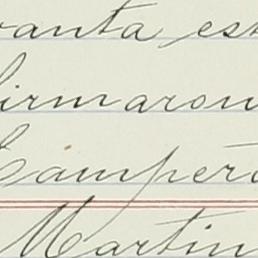 ranta es
firmaron
Campero
Martin